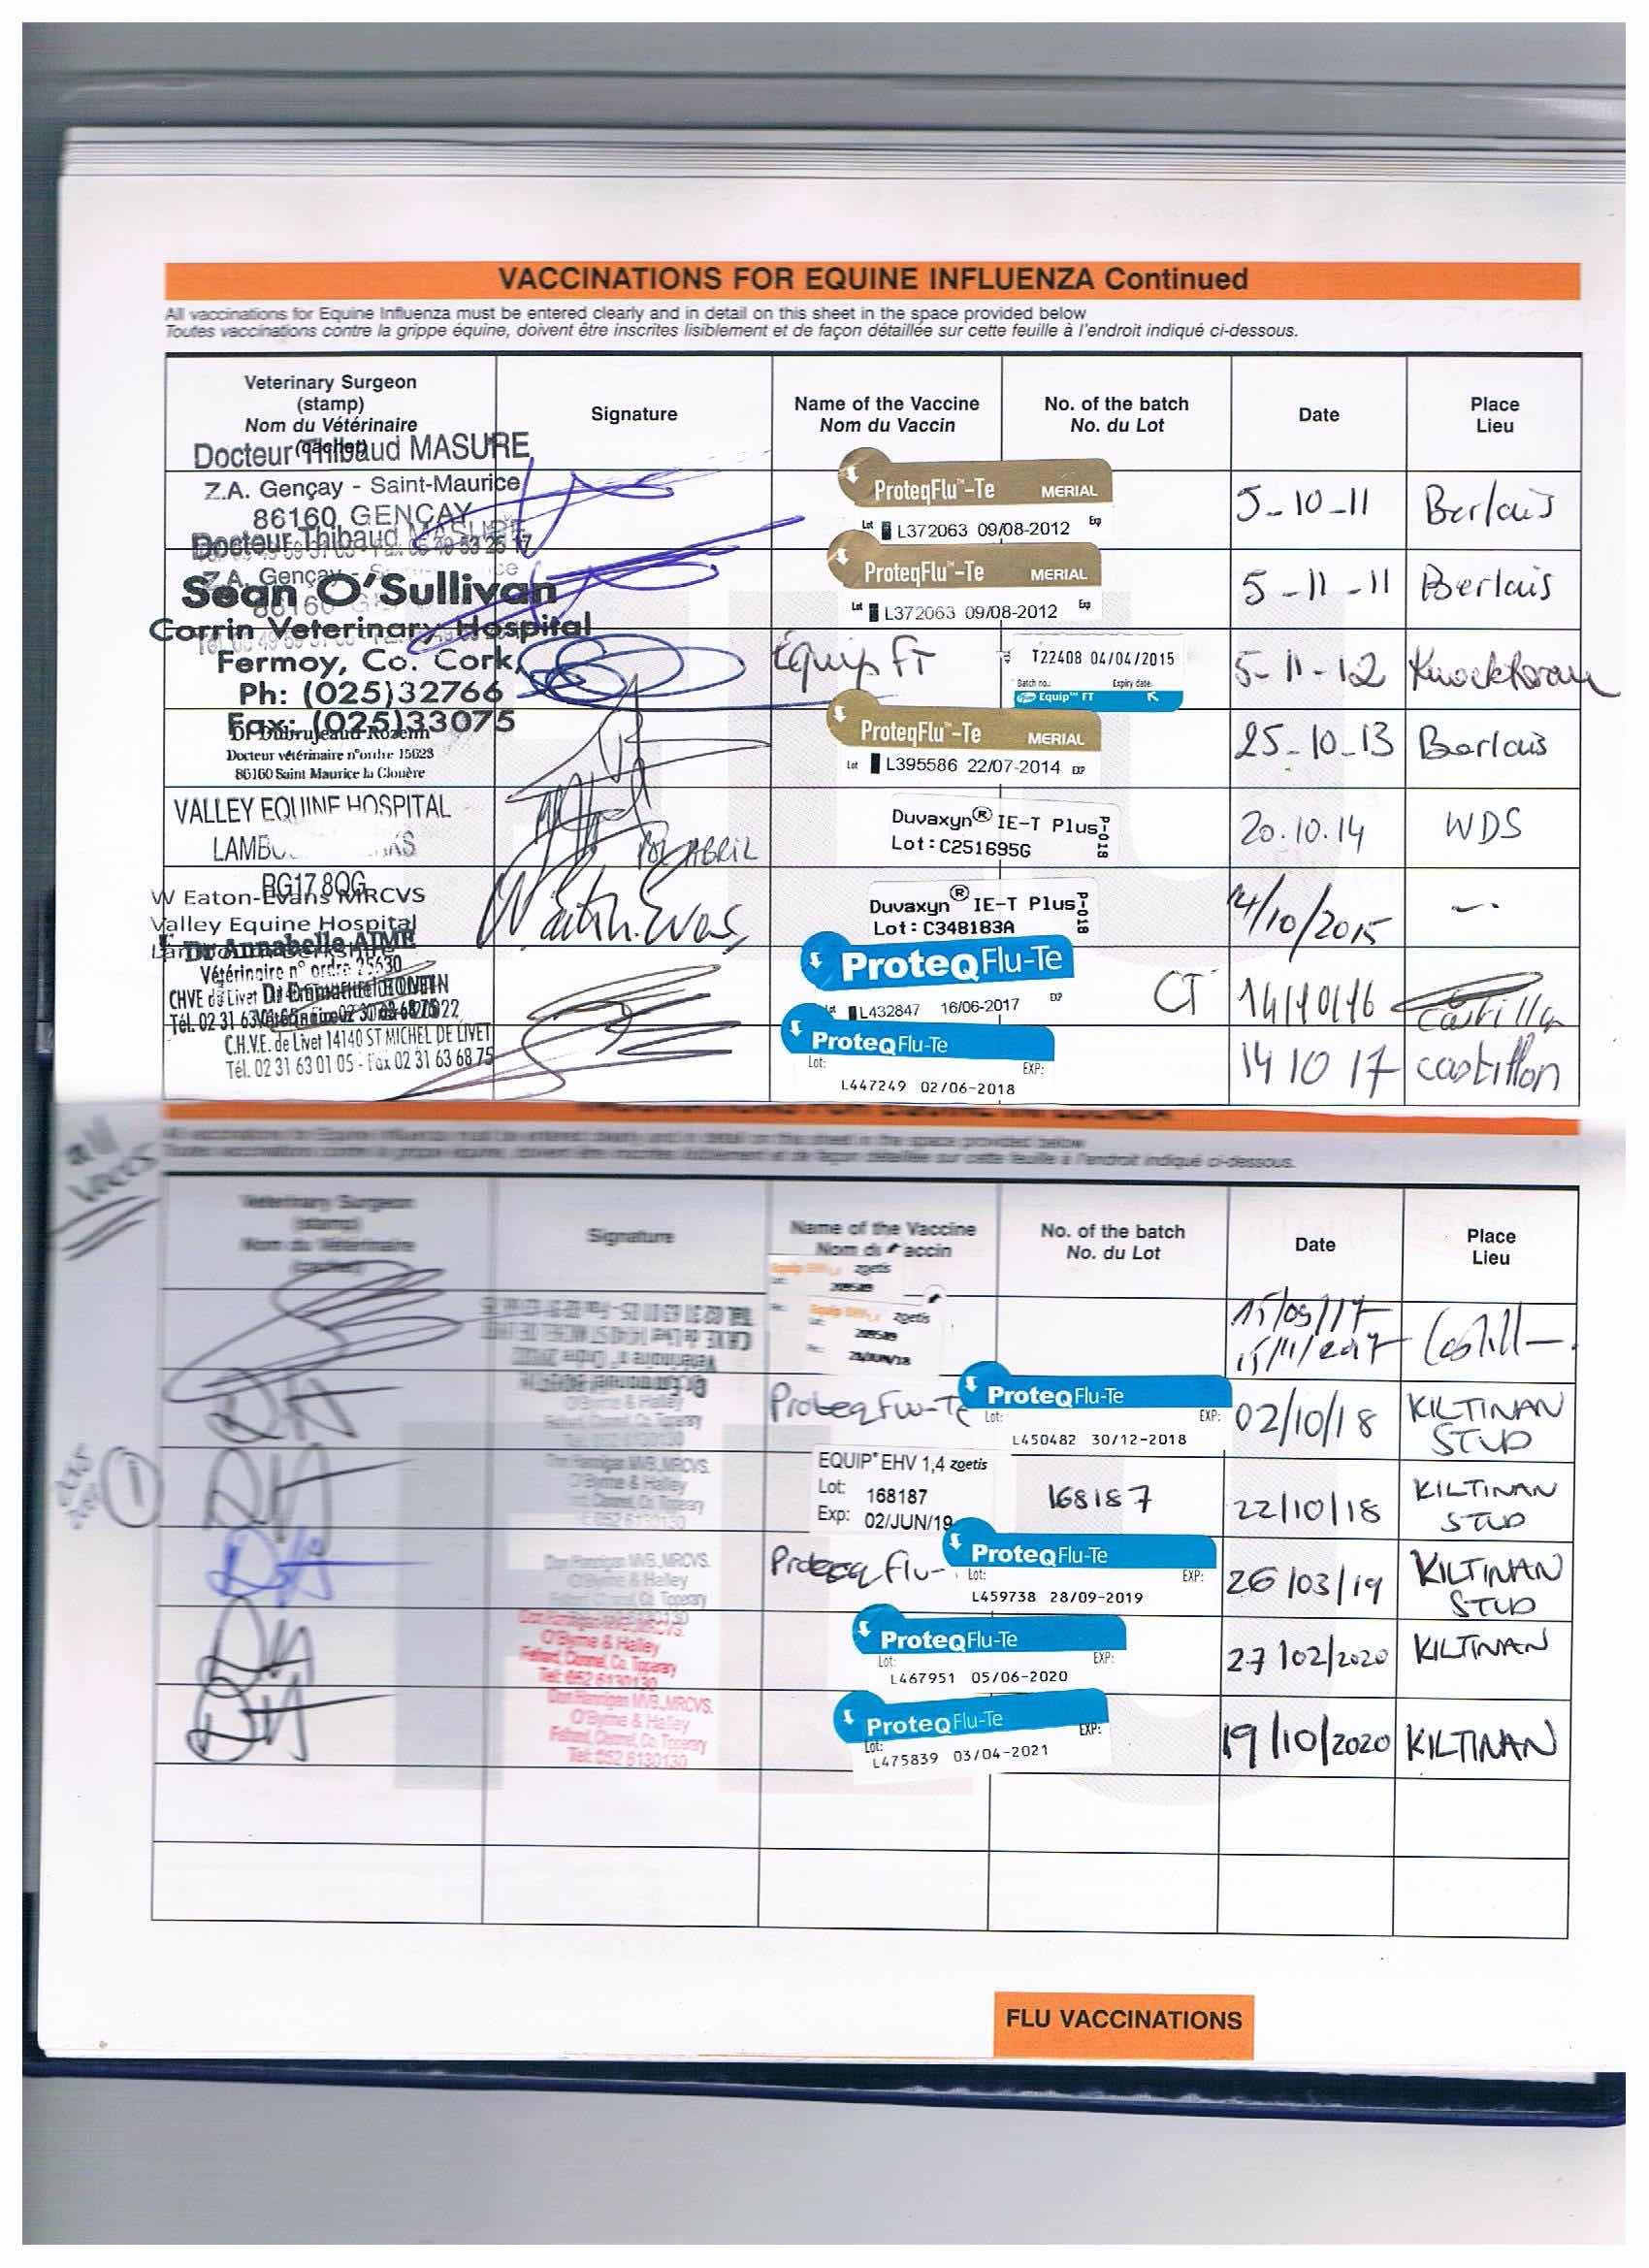 VACCINATIONS FOR EQUINE INFLUENZA Continued
All vaccinations for Equine Influenza must be entered clearly and in detail on this sheet in the space provided below
Toutes vaccinations contre la grippe équine, doivent être inscrites lisiblement et de façon détaillée sur cette feuille à l'endroit indiqué ci-dessous.
Veterinary Surgeon
(stamp)
Nom du Vétérinaire
(cachet)
Signature
Name of the Vaccine
Nom du Vaccin
No. of the batch
No. du Lot
Date
Place
Lieu
Docteur Thibaud MASURE
Z.A. Gençay - Saint-Maurice
86160 GENÇAY
ProteqFlu™-Te MERIAL
Lot L372063 09/08-2012 Exp
5-10-11
Berlais
Docteur Thibaud MASURE
Z.A. Gençay
86160
ProteqFlu™-Te MERIAL
Lot L372063 09/08-2012 Exp
5-11-11
Berlais
Sean O'Sullivan
Corrin Veterinary Hospital
Fermoy, Co. Cork,
Ph: (025)32766
Fax: (025)33075
Equip FT
T22408 04/04/2015
Batch no.: Expiry date:
Equip™ FT
5-11-12
Dr Dubrujeaud Rozenn
Docteur vétérinaire n°ordre 15623
86160 Saint Maurice la Clouère
ProteqFlu™-Te MERIAL
Lot L395586 22/07-2014 EXP
25-10-13
Berlais
VALLEY EQUINE HOSPITAL
RG17 8QG
Duvaxyn® IE-T Plus
Lot:C251695G
P-018
20.10.14
WDS
W Eaton-Evans MRCVS
Valley Equine Hospital
Duvaxyn® IE-T Plus
Lot:C348183A
P-018
14/10/2015
Dr Annabelle AIME
Vétérinaire n° ordre 25630
CHVE de Livet
ProteqFlu-Te
Lot L432847 16/06-2017 EXP
CT
14/10/16
Castillon
C.H.V.E. de Livet 14140 ST MICHEL DE LIVET
Tél. 02 31 63 01 05 - Fax 02 31 63 68 75
ProteqFlu-Te
Lot: EXP:
L447249 02/06-2018
14 10 17
castillon
All vaccinations for Equine Influenza must be entered clearly and in detail on this sheet in the space provided below
Toutes vaccinations contre la grippe équine, doivent être inscrites lisiblement et de façon détaillée sur cette feuille à l'endroit indiqué ci-dessous.
all
vaccs
Veterinary Surgeon
(stamp)
Nom du Vétérinaire
(cachet)
Signature
Name of the Vaccine
Nom du Vaccin
No. of the batch
No. du Lot
Date
Place
Lieu
zoetis
zoetis
209589
28/JUN/18
15/09/17
15/11/2017
ProteqFlu-Te
ProteqFlu-Te
Lot: EXP:
L450482 30/12-2018
02/10/18
KILTINAN
STUD
1
Don Hannigan MVB, MRCVS.
O'Byrne & Halley
EQUIP® EHV 1,4 zoetis
Lot: 168187
Exp: 02/JUN/19
168187
22/10/18
KILTINAN
STUD
Don Hannigan MVB, MRCVS.
O'Byrne & Halley
Proteq Flu-
ProteqFlu-Te
Lot: EXP:
L459738 28/09-2019
26/03/19
KILTINAN
STUD
O'Byrne & Halley
Fethard, Clonmel, Co. Tipperary
Tel: 052 6130130
ProteqFlu-Te
Lot: EXP:
L467951 05/06-2020
27/02/2020
KILTINAN
Don Hannigan MVB, MRCVS.
O'Byrne & Halley
Fethard, Clonmel, Co. Tipperary
Tel: 052 6130130
ProteqFlu-Te
Lot: EXP:
L475839 03/04-2021
19/10/2020
KILTINAN
FLU VACCINATIONS